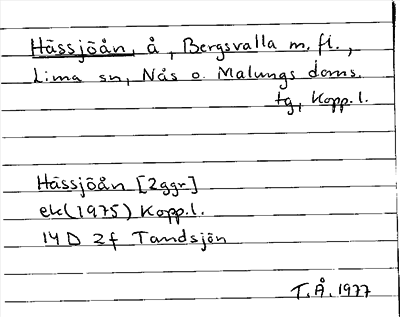 Hässjöån, å, Bergsvalla m. fl.,
Lima sn, Nås o. Malungs doms.
tg, Kopp. l.
Hässjöån [2ggr]
ek(1975) Kopp.l.
14 D 2f Tandsjön
T.Å. 1977